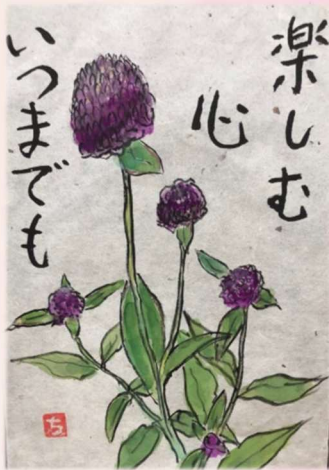 楽しむ
心
いつまでも